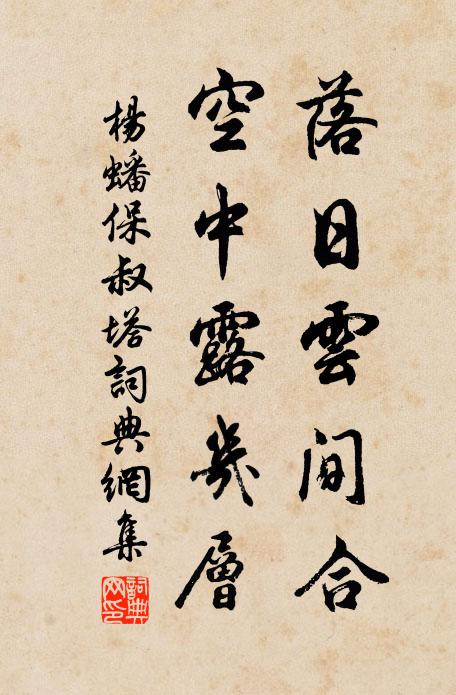 落日雲間合
空中露幾層
楊蟠保叔塔詞典網集
詞典網印